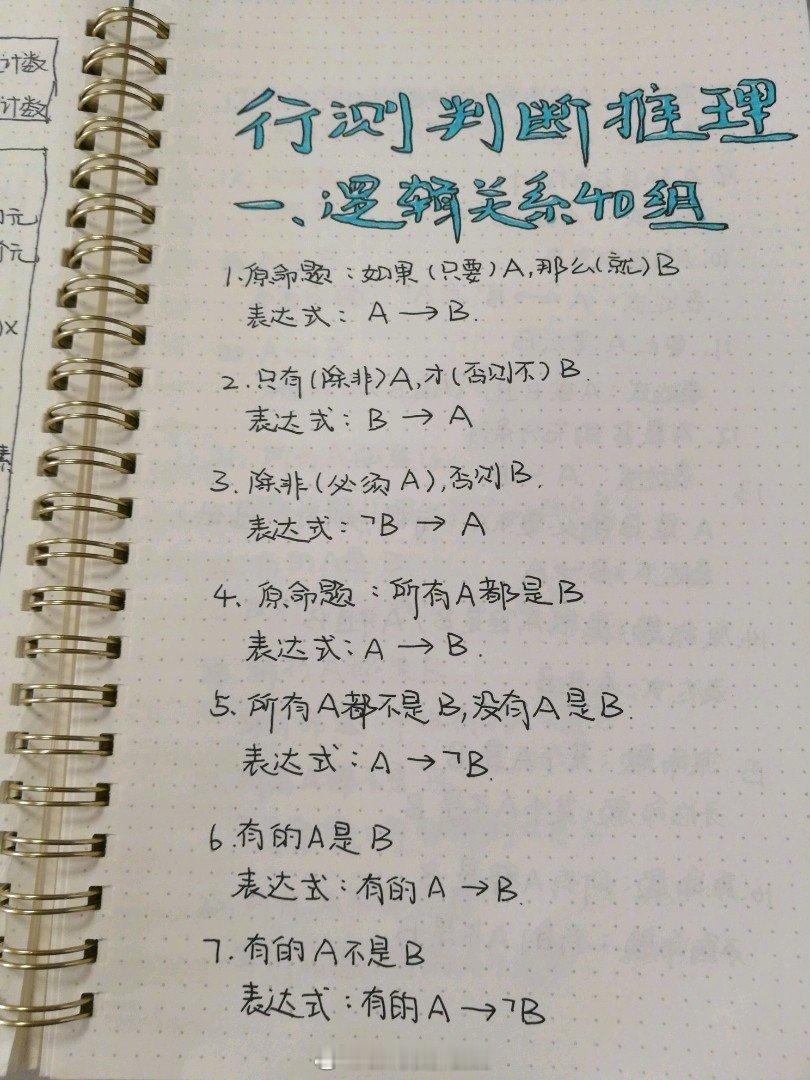 行测判断推理
一、逻辑关系40组
1.原命题：如果(只要)A,那么(就)B
表达式：A→B.
2.只有(除非)A,才(否则不)B.
表达式：B→A
3.除非(必须A),否则B.
表达式：¬B→A
4.原命题：所有A都是B
表达式：A→B.
5.所有A都不是B,没有A是B.
表达式：A→¬B.
6.有的A是B
表达式：有的A→B.
7.有的A不是B
表达式：有的A→¬B
计数
计数